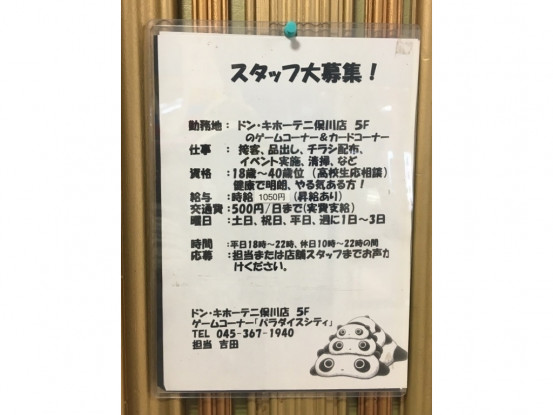 スタッフ大募集！
勤務地： ドン・キホーテ二俣川店 5F
のゲームコーナー＆カードコーナー
仕事 ： 接客、品出し、チラシ配布、
イベント実施、清掃、など
資格 ：18歳～40歳位（高校生応相談）
健康で明朗、やる気ある方！
給与 ：時給 1050円（昇給あり）
交通費：500円/日まで(実費支給)
曜日 ：土日、祝日、平日、週に1日～3日
時間 ：平日18時～22時、休日10時～22時の間
応募 ：担当または店舗スタッフまでお声が
けください。
ドン・キホーテ二俣川店 5F
ゲームコーナー「パラダイスシティ」
TEL 045-367-1940
担当 吉田